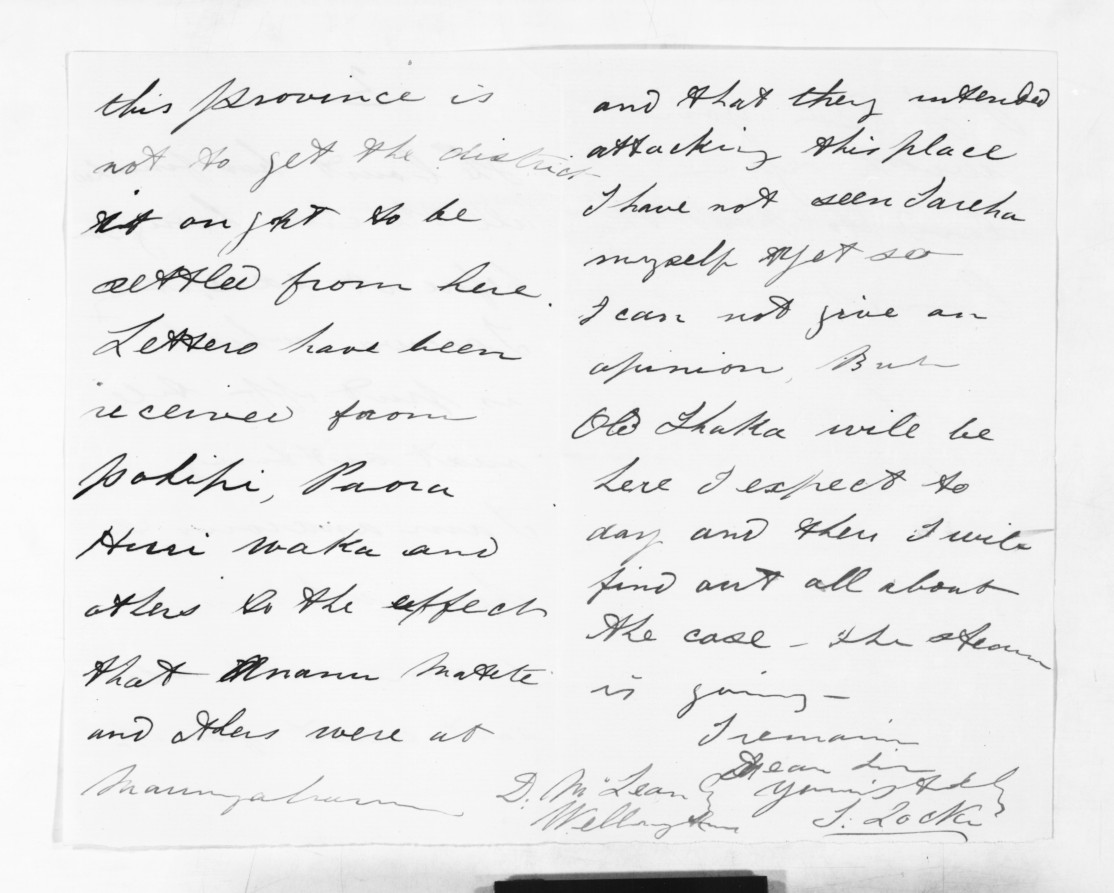 this province is
not to get the district
it ought to be
settled from here.
Letters have been
received from
Pohipi, Paora
Huri waka and
others to the effect
that Anaru Matete
and others were at
Maungaharuru
and that they intended
attacking this place
I have not seen Tareha
myself yet so
I can not give an
opinion, But
Old Ihaka will be
here I expect to
day and then I will
find out all about
the case - the steam
is going -
I remain
Dear Sir
Yours
S. Locke
D. McLean
Wellington